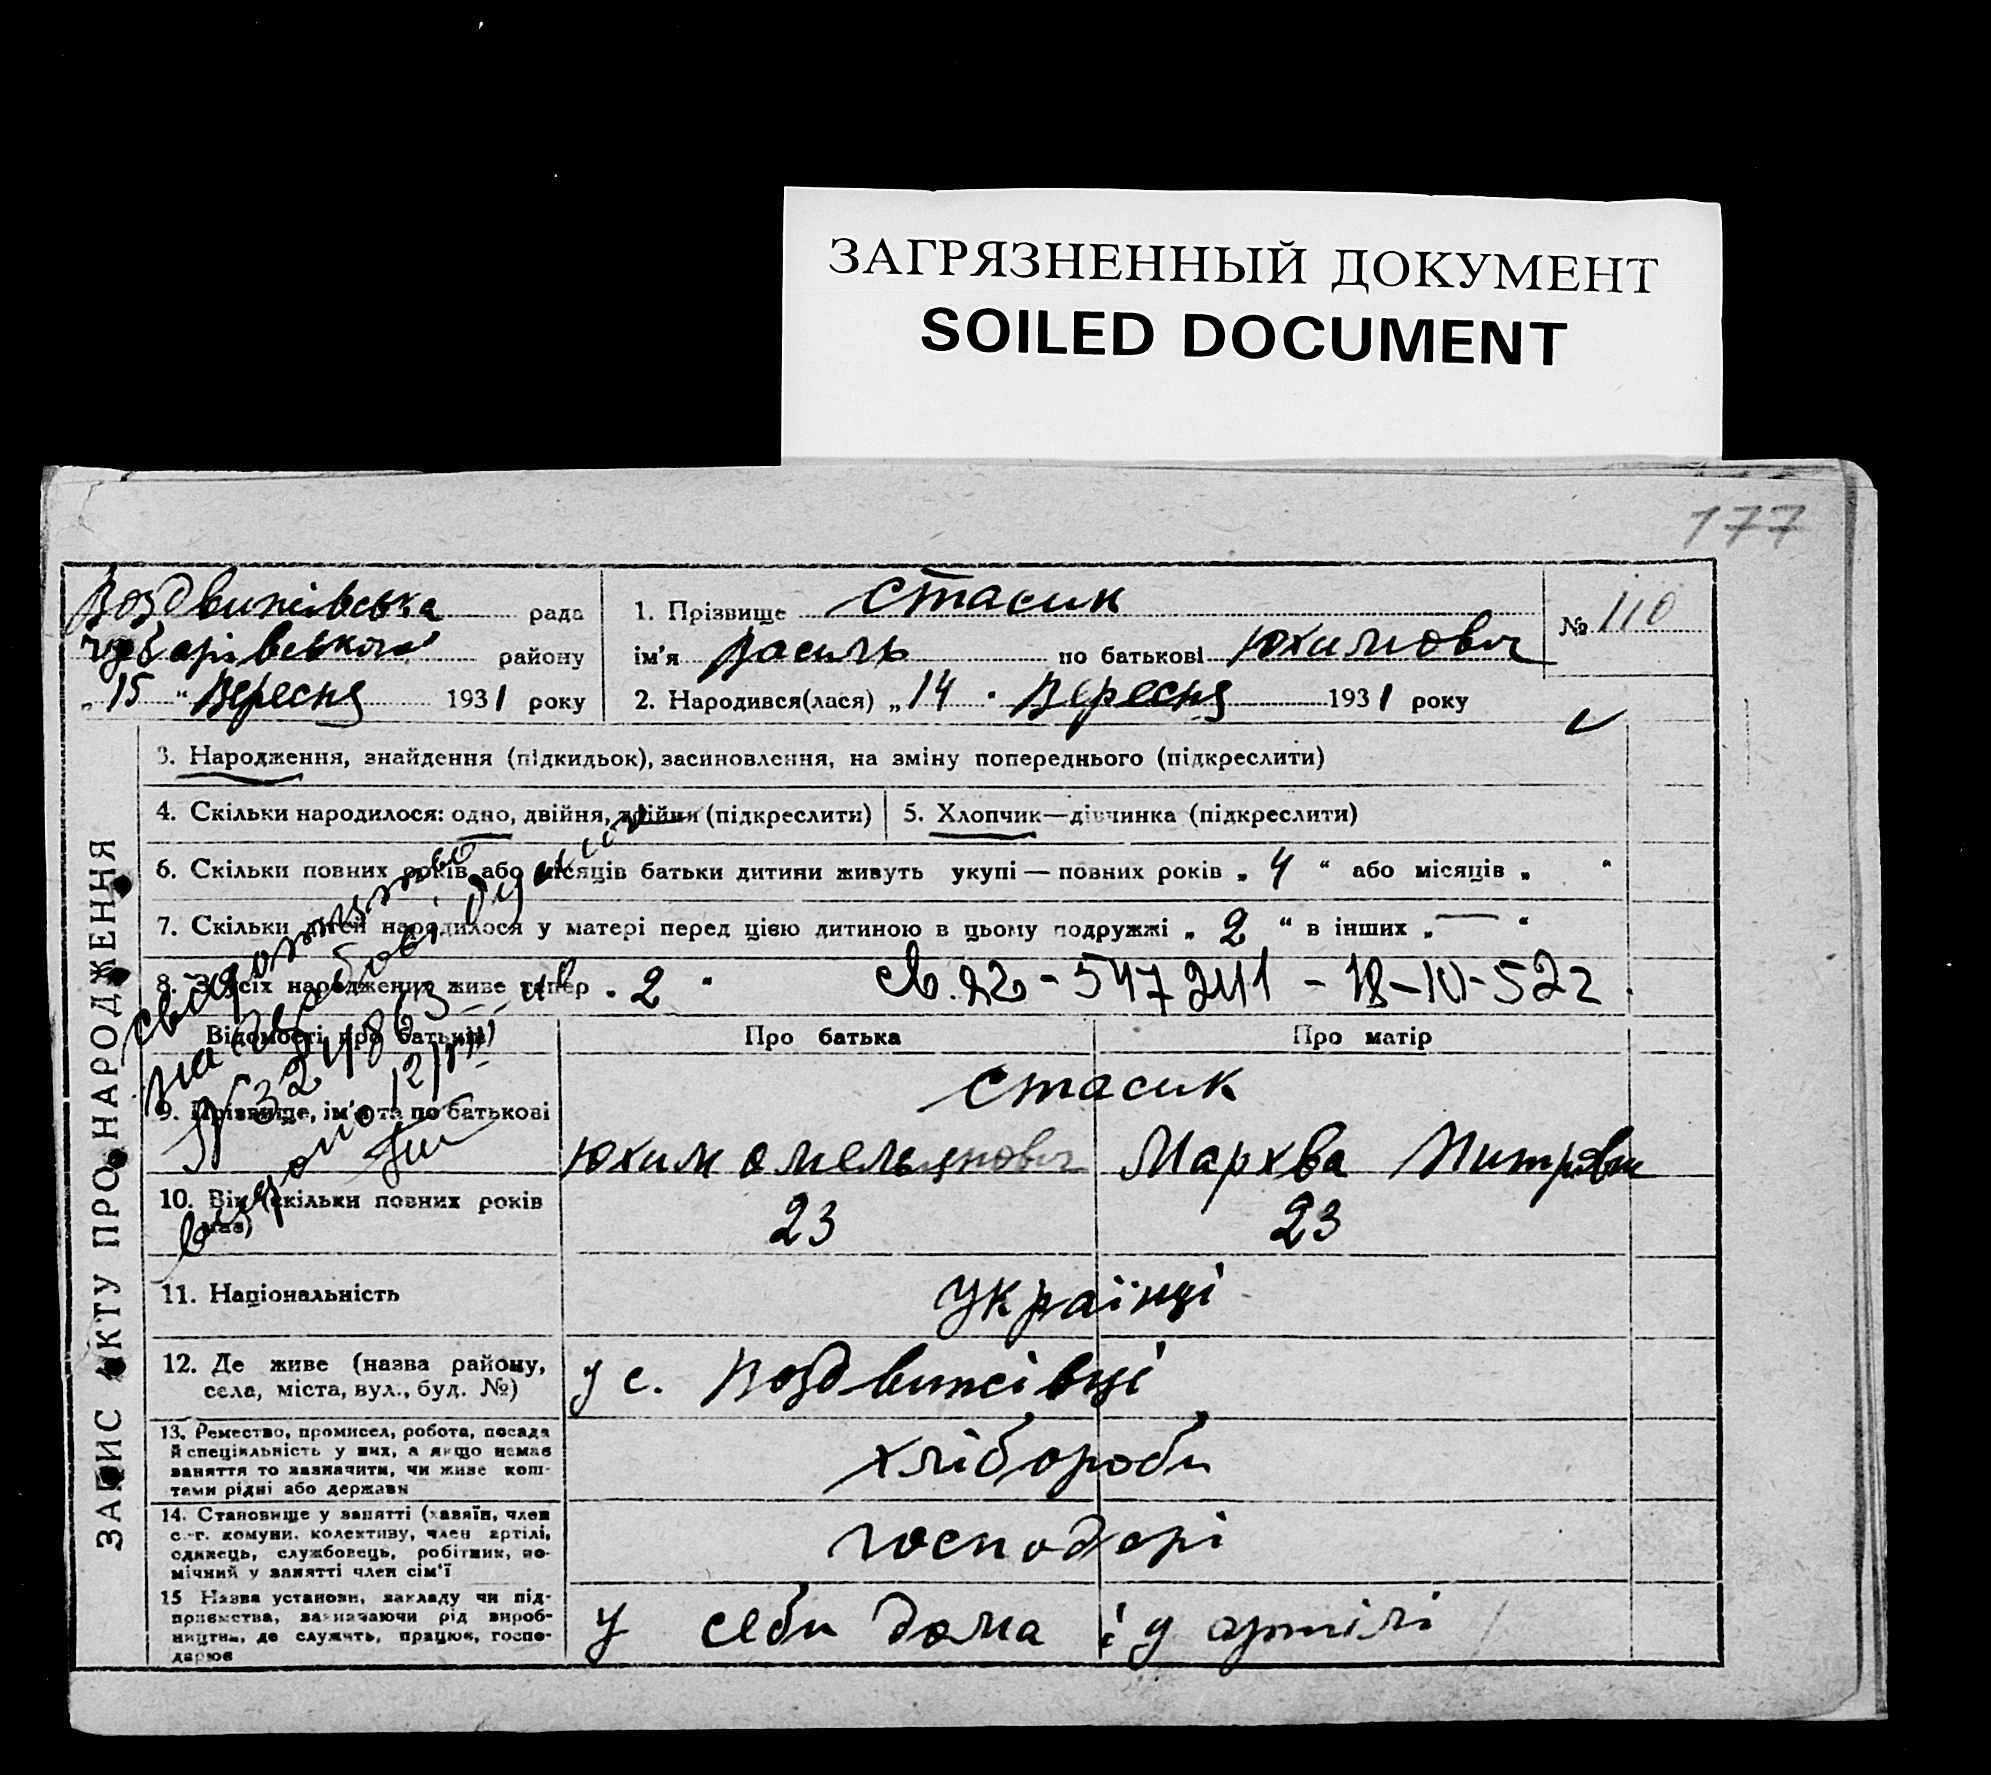 ЗАГРЯЗНЕННЫЙ ДОКУМЕНТ
SOILED DOCUMENT
177
Воздвижівська рада
Чубарівського району
„ 15 “ Вересня 1931 року
1. Прізвище Стасик
ім'я Василь по батькові Юхимович
2. Народився(лася) „ 14 " Вересня 1931 року
№ 110
ЗАПИС АКТУ ПРО НАРОДЖЕННЯ
3. Народження, знайдення (підкидьок), засиновлення, на зміну попереднього (підкреслити)
4. Скільки народилося: одно, двійня, трійня (підкреслити)
5. Хлопчик—дівчинка (підкреслити)
6. Скільки повних років або місяців батьки дитини живуть укупі — повних років „ 4 “ або місяців „ “
7. Скільки дітей народилося у матері перед цією дитиною в цьому подружжі „ 2 “ в інших „ — “
8. З усіх народжених живе тепер „ 2 "
Відомості про батьків
Про батька
Про матір
9. Прізвище, ім'я та по батькові
Стасик
Юхим Омельянович
Мархва
10. Вік (скільки повних років має)
23
23
11. Національність
Українці
12. Де живе (назва району,
села, міста, вул., буд. №)
у с. Воздвижівці
13. Ремество, промисел, робота, посада
й спеціяльність у них, а якщо немає
заняття то зазначити, чи живе кош-
тами рідні або держави
хлібороби
14. Становище у занятті (хазяїн, член
с.-г. комуни, колективу, член артілі,
одинець, службовець, робітник, по-
мічний у занятті член сім'ї
господарі
15 Назва установи, закладу чи під-
приємства, зазначаючи рід вироб-
ництва, де служить, працює, госпо-
дарює
у себи дома і у артілі